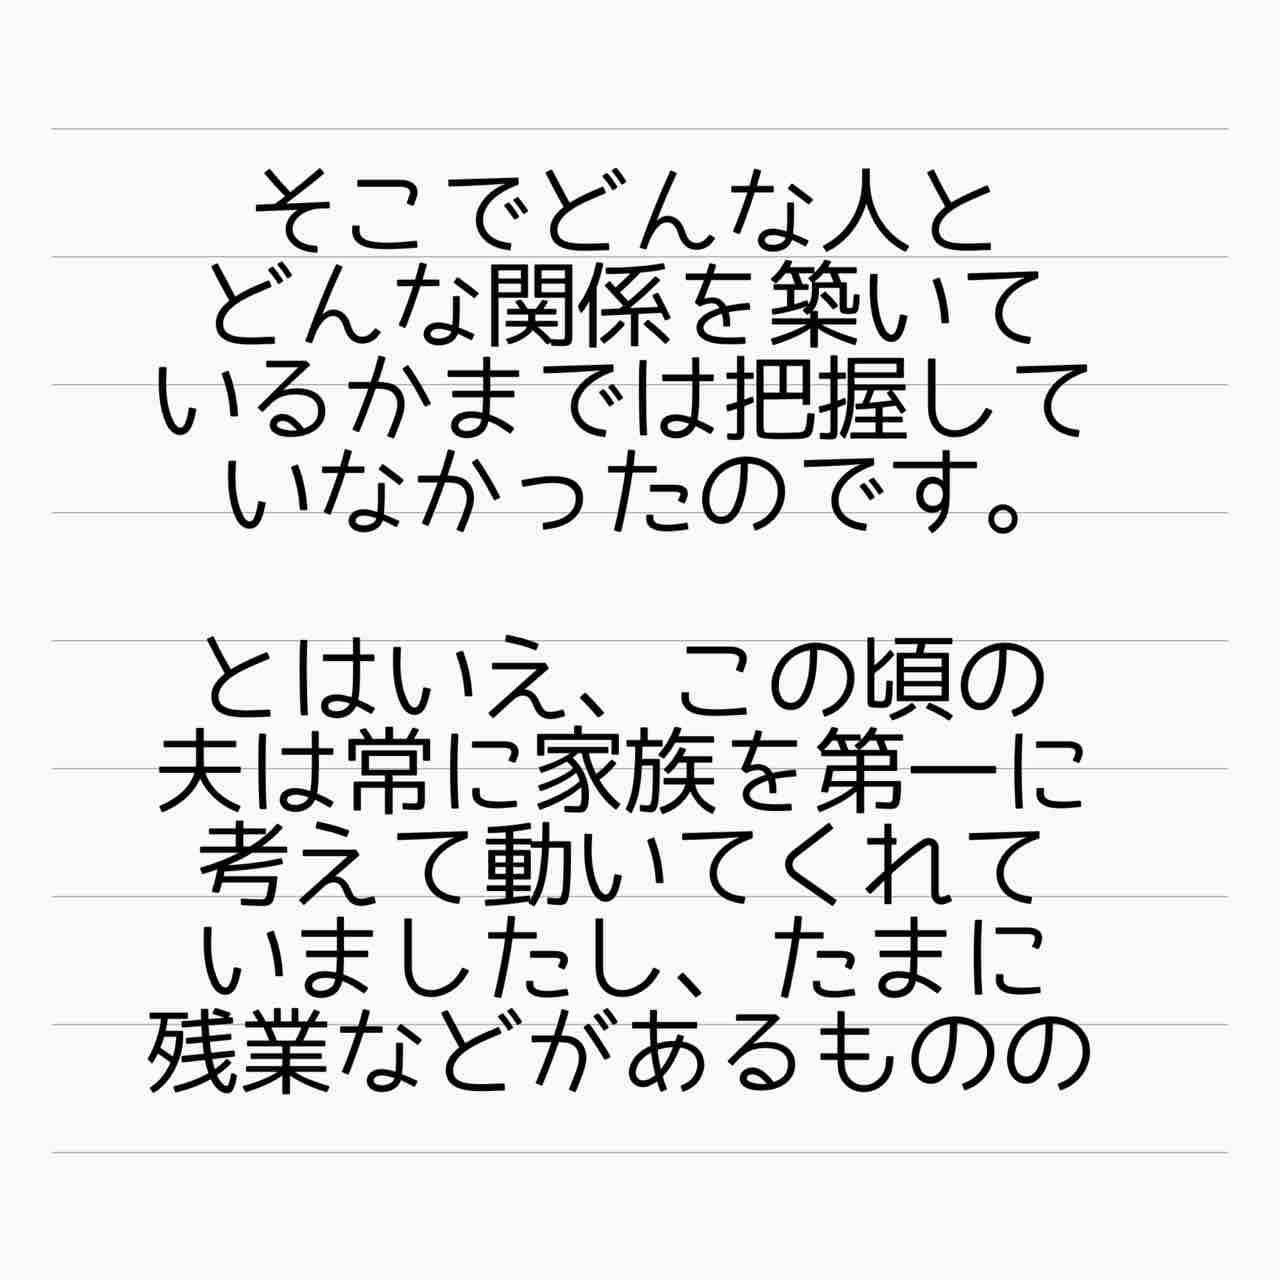 そこでどんな人と
どんな関係を築いて
いるかまでは把握して
いなかったのです。
とはいえ、この頃の
夫は常に家族を第一に
考えて動いてくれて
いましたし、たまに
残業などがあるものの